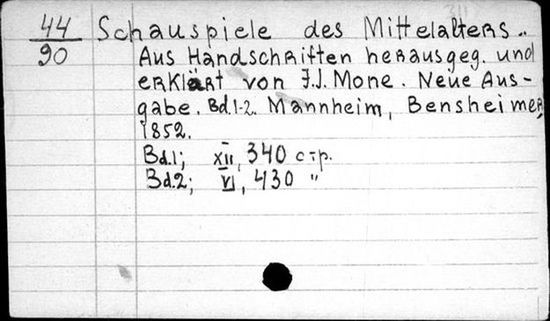 44 Schauspiele des Mittelalters..
90 Aus Handschriften herausgeg. und
erklärt von F.J. Mone. Neue Aus-
gabe. Bd.1-2. Mannheim, Bensheimer,
1852.
Bd.1; XII, 340 стр.
Bd.2; VI, 430 "